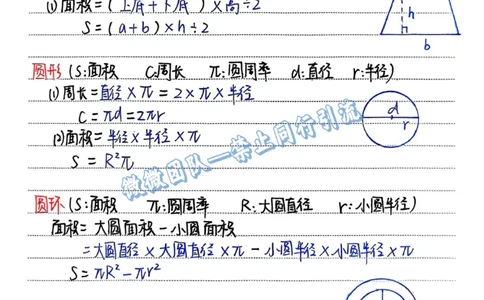 (1)面积=(上底+下底)×高÷2
S=(a+b)×h÷2
h
b
圆形(S:面积 C:周长 π:圆周率 d:直径 r:半径)
(1)周长=直径×π=2×π×半径
C=πd=2πr
d
r
(2)面积=半径×半径×π
S=R²π
微微团队—禁止同行引流
圆环(S:面积 π:圆周率 R:大圆直径 r:小圆半径)
面积=大圆面积-小圆面积
=大圆直径×大圆直径×π-小圆半径×小圆半径×π
S=πR²-πr²